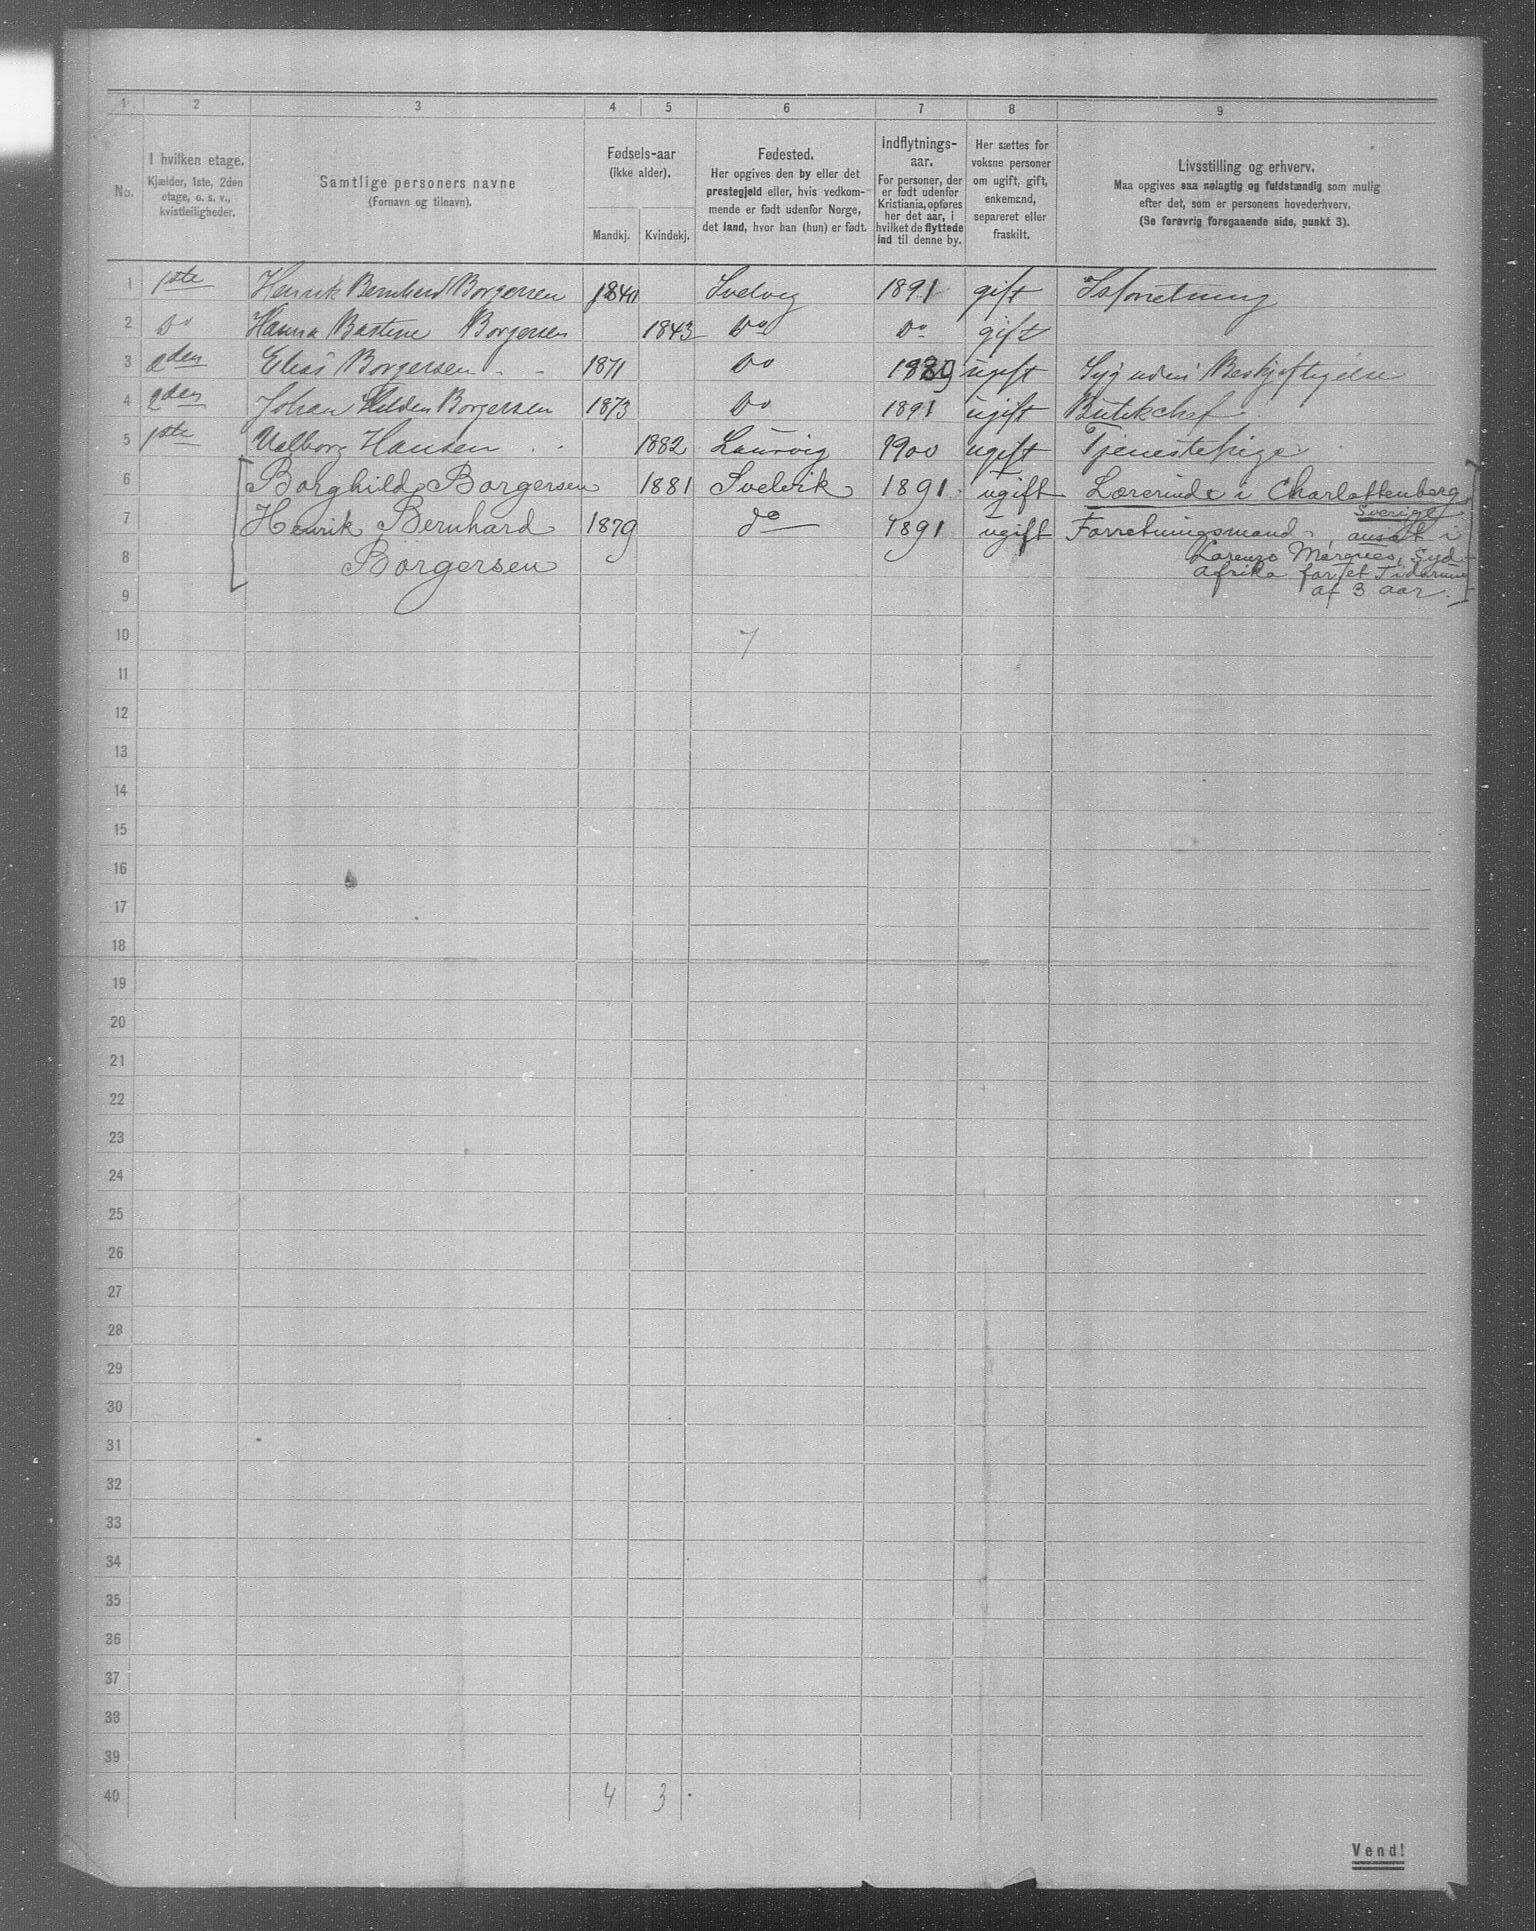 1 2 3 4 5 6 7 8 9
No.
I hvilken etage.
Kjælder, 1ste, 2den
etage, o. s. v.,
kvistleiligheder.
Samtlige personers navne
(Fornavn og tilnavn).
Fødsels-aar
(ikke alder).
Mandkj. Kvindekj.
Fødested.
Her opgives den by eller det
prestegjeld eller, hvis vedkom-
mende er født udenfor Norge,
det land, hvor han (hun) er født.
Indflytnings-
aar.
For personer, der
er født udenfor
Kristiania, opføres
her det aar, i
hvilket de flyttede
ind til denne by.
Her sættes for
voksne personer
om ugift, gift,
enkemand,
separeret eller
fraskilt.
Livsstilling og erhverv.
Maa opgives saa nøiagtig og fuldstændig som mulig
efter det, som er personens hovederhverv.
(Se forøvrig foregaaende side, punkt 3).
1 1ste Henrik Bernhard Borgersen 1840 Svelvig 1891 gift Isforretning
2 Do Hanna Bastine Borgersen 1843 Do Do gift
3 2den Elias Borgersen 1871 Do 1889 ugift Syg uden Beskjeftigelse
4 2den Johan Borgersen 1873 Do 1891 ugift Butikchef
5 1ste Valborg Hansen 1882 Laurvig 1900 ugift Tjenestepige
6 Borghild Borgersen 1881 Svelvik 1891 ugift Lærerinde i Charlottenberg
Sverige
7 Henrik Bernhard 1879 do 1891 ugift Forretningsmand, ansat i
8 Borgersen Lorenzo Marques, Syd-
Afrika for et Tidsrum
9 af 3 aar.
10 7
11
12
13
14
15
16
17
18
19
20
21
22
23
24
25
26
27
28
29
30
31
32
33
34
35
36
37
38
39
40 4 3
Vend!